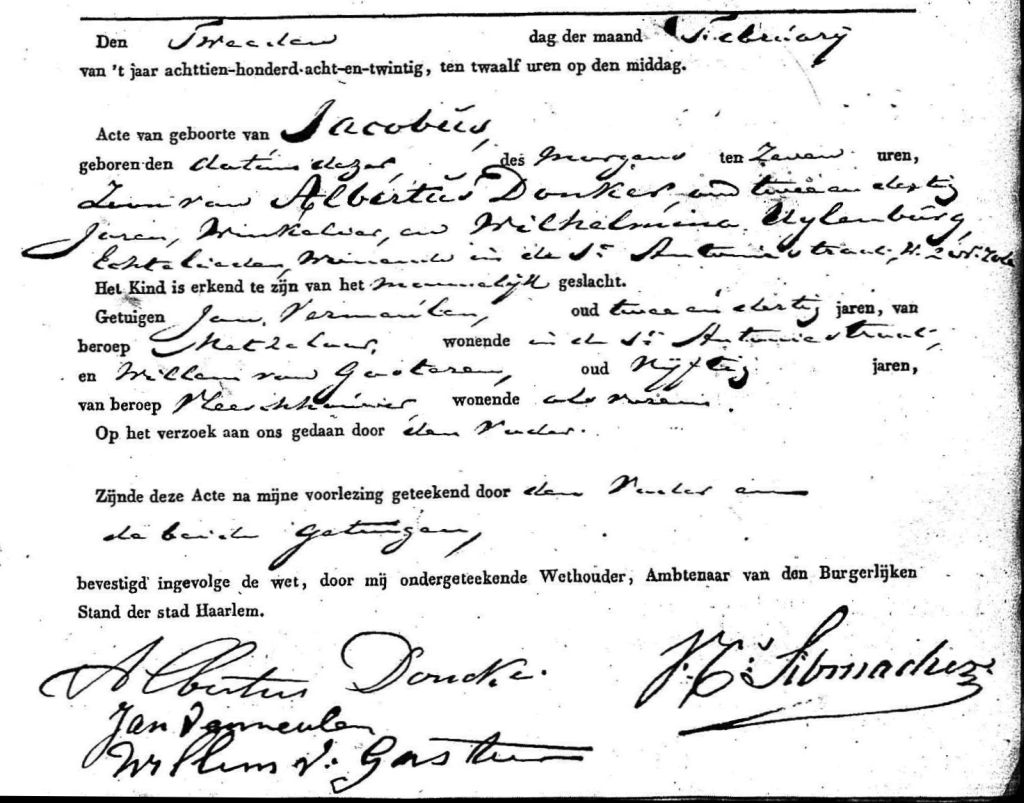 Den Tweeden dag der maand February
van 't jaar achttien-honderd-acht-en-twintig, ten twaalf uren op den middag.
Acte van geboorte van Jacobus,
geboren den datum dezer, des Morgens ten Zeven uren,
Zoon van Albertus Donker, oud twee en dertig
Jaren, Winkelier, en Wilhelmina Uylenburg,
Echtelieden, wonende in de St. Antoniestraat, W. 2 No.
Het Kind is erkend te zijn van het mannelijk geslacht.
Getuigen Jan Vermeulen, oud twee en dertig jaren, van
beroep Metzelaar, wonende in de St. Antoniestraat,
en Willem van Gasteren, oud Vijftig jaren,
van beroep Vleeschhouwer, wonende als voren.
Op het verzoek aan ons gedaan door den Vader.
Zijnde deze Acte na mijne voorlezing geteekend door den Vader en
de beide getuigen,
bevestigd ingevolge de wet, door mij ondergeteekende Wethouder, Ambtenaar van den Burgerlijken
Stand der stad Haarlem.
Albertus Doncker
Jan Vermeulen
Willem v: Gasteren